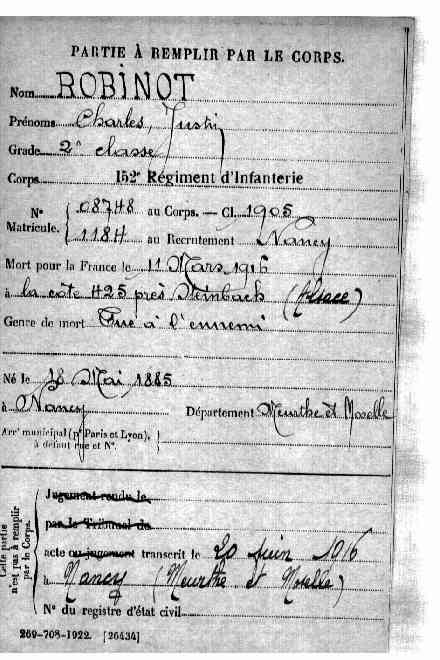 PARTIE À REMPLIR PAR LE CORPS.
Nom ROBINOT
Prénoms Charles, Justin
Grade 2e classe
Corps 152e Régiment d'Infanterie
No Matricule. 08748 au Corps. — Cl. 1905
1184 au Recrutement Nancy
Mort pour la France le 11 Mars 1916
à la cote 425 près Steinbach (Alsace)
Genre de mort Tué à l'ennemi
Né le 18 Mai 1885
à Nancy Département Meurthe et Moselle
Arrt municipal (pr Paris et Lyon),
à défaut rue et No.
Cette partie
n'est pas à remplir
par le Corps.
Jugement rendu le
par le Tribunal de
acte ou jugement transcrit le 20 Juin 1916
à Nancy (Meurthe et Moselle)
No du registre d'état civil
269-708-1922. [26434]